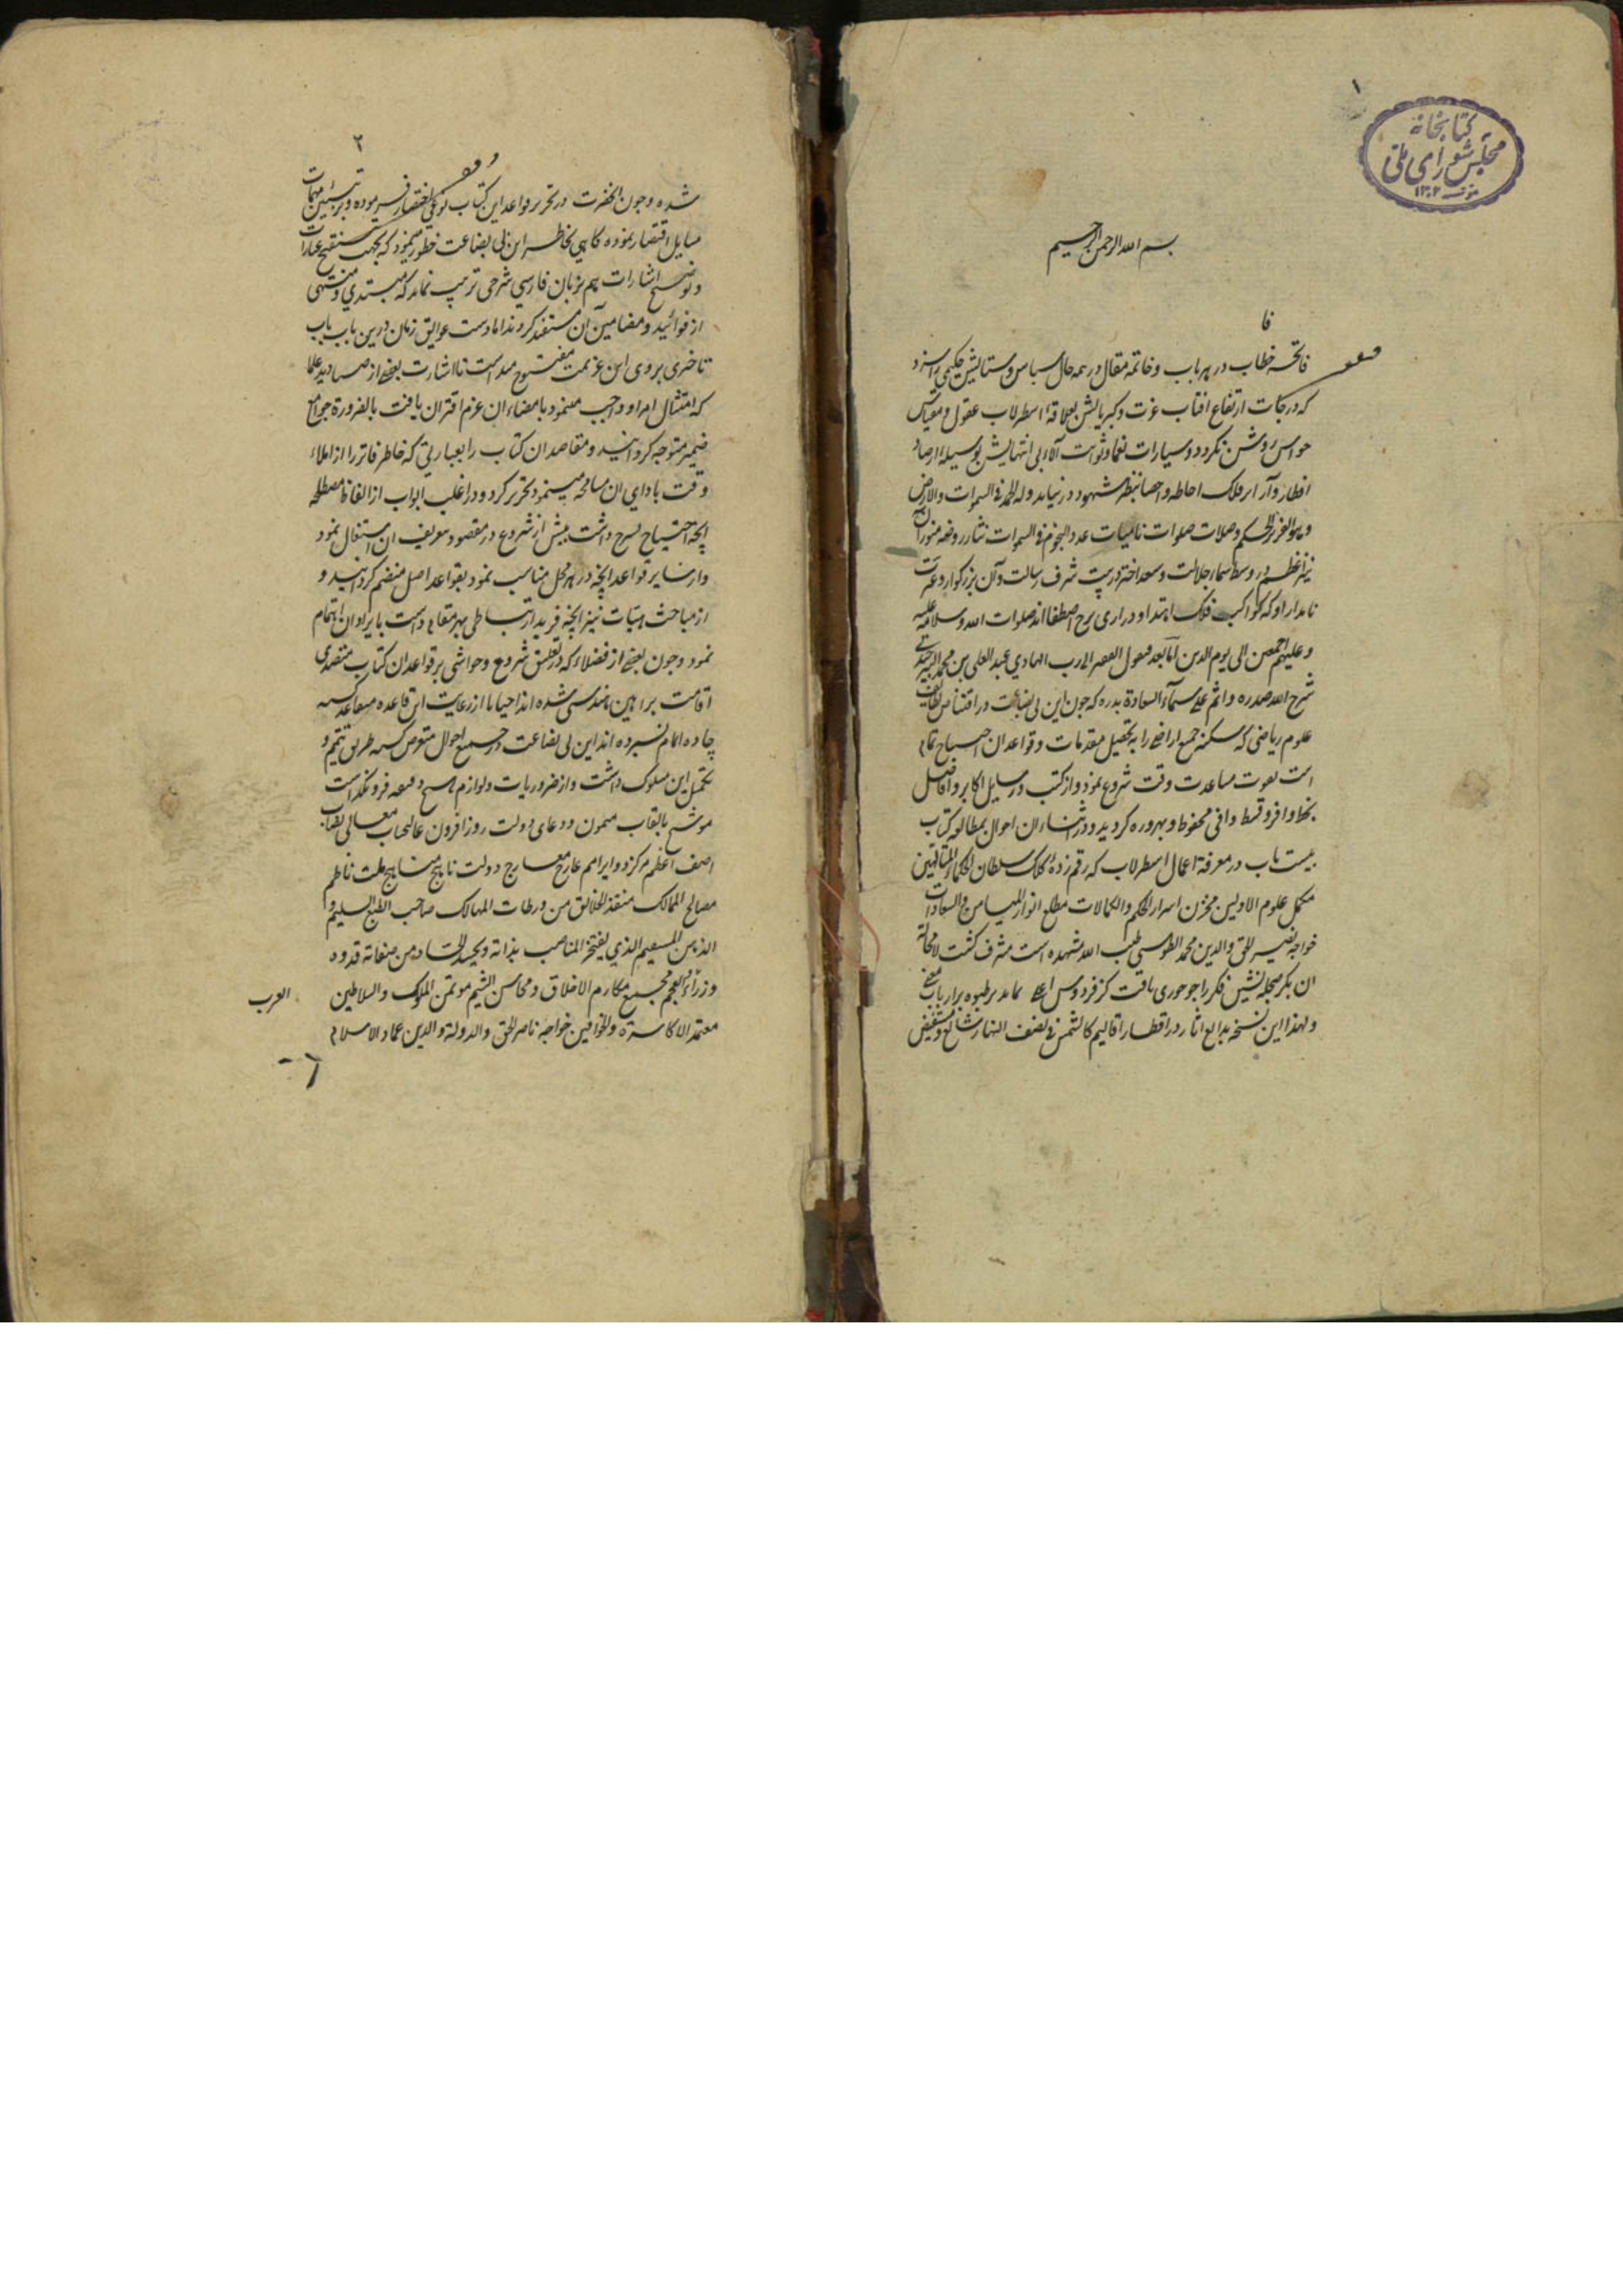 ۱
کتابخانه
مجلس شورای ملی
۱۳۰۲
بسم الله الرحمن الرحیم
فا
فاتحه خطاب در هر باب و خاتمه مقال در همه حال سپاس و ستایش حکیمی را سزد
که درجات ارتفاع افتاب عزت و کبریایش بعلاقهٔ اسطرلاب عقول و مقیاس
حواس روشن نکردد و سیارات نعما و ثوابت آلاء بی انتهایش بوسیله ارصاد
افطار و آراء برفلک احاطه و احصا بنظر شهود در نیاید وله الحمد فی السموات والارض
و هو العزیز الحکیم و صلات صلوات نامیات عدد النجوم فی السموات نثار روضه منور آن
نیر اعظم در وسط سماء جلالت و سعد اختر در بیت شرف رسالت و آن بزرکوار و عترت
نامدار او که کواکب فلک اهتدا و دراری برج اصطفا اند صلوات الله و سلامه علیه
و علیهم اجمعین الی یوم الدین اما بعد فیقول الفقیر الی رب الهادی عبد العلی بن محمد البیرجندی
شرح الله صدره و اتم علی سماء السعادة بدره که چون این بی بضاعت در اقتناص
علوم ریاضی که سکنه جمع اراضی را به تحصیل مقدمات و قواعد ان احتیاج تمام
است بقوت مساعدت وقت شروع نمود و از کتب و رسایل اکابر و افاضل
بحظ وافر و قسط وافی محظوظ و بهره‌ور کردید و در اثناء ان احوال بمطالعه کتاب
بیست باب در معرفة اعمال اسطرلاب که رقم زدهٔ کلک سلطان الحکماء المتالهین
مکمل علوم الاولین مخزن اسرار الحکم والکمالات مطلع انوار المیامن والسعادات
خواجه نصیر الحق والدین محمد الطوسی طیب الله مشهده است مشرف کشت لا محاله
ان بکر حجله نشین فکر را چو حوری یافت کز فردوس اعلی نماید جلوه بر ارباب معنی
و لهذا این نسخه بدایع اثار در اقطار اقالیم کالشمس فی نصف النهار شایع و مستفیض
۲
شده و چون انحضرت در تحریر قواعد این کتاب نوعی اختصار فرموده و بر تبیین مهمات
مسایل اقتصار نموده کاهی بخاطر این بی بضاعت خطور مینمود که بجهت تنقیح عبارات
و توضیح اشارات هم بزبان فارسی شرحی ترتیب نماید که مبتدی و منتهی
از فوائید و مضامین آن مستفید کردند اما دست عوایق زمان درین باب باب
تاخیری بروی این عزیمت مفتوح میداشت تا اشارت بعضی از صنادید علما
که امتثال امر او واجب مینمود بامضاء ان عزم اقتران یافت بالضرورة جوامع
ضمیر متوجه کردانید و مقاصد ان کتاب را بعبارتی که خاطر فاتر را از املاء
وقت بادای ان مسامحه مینمود تحریر کرد و در اغلب ابواب از الفاظ مصطلحه
انچه احتیاج بشرح داشت پیش از شروع در مقصود بتعریف ان اشتغال نمود
و از سایر قواعد انچه در هر محل مناسب نمود بقواعد اصل منضم کردانید و
از مباحث هیئات نیز انچه فرید ارتباطی بهر مقام داشت بایراد ان اهتمام
نمود و چون بعضی از فضلاء که در تعلیق شروح و حواشی بر قواعد ان کتاب متصدی
اقامت براهین هندسی شده اند احیانا از رعایت این قاعده
جاده اتمام نسپرده اند این بی بضاعت در جمیع احوال متعرض کشته طریق تتمیم و
تکمیل این سلوک داشت و از ضروریات و لوازم هیچ دقیقه فرو نکذاشت
موشح بالقاب میمون و دعای دولت روز افزون عالیجناب معالی نصاب
اصف اعظم مرکز دوایر امم عارج معارج دولت ناهج مناهج ملت ناظم
مصالح الممالک منقذ الخلائق من ورطات المهالک صاحب الطبع السلیم و
الذهن المستقیم الذی یفتخر المناصب بذاته و من صفاته قدوه
وزراء العجم مجمع مکارم الاخلاق و محاسن الشیم موتمن الملوک والسلاطین
العرب
معتمد الاکاسرة والخواقین خواجه ناصر الحق والدولة والدین عماد الاسلام